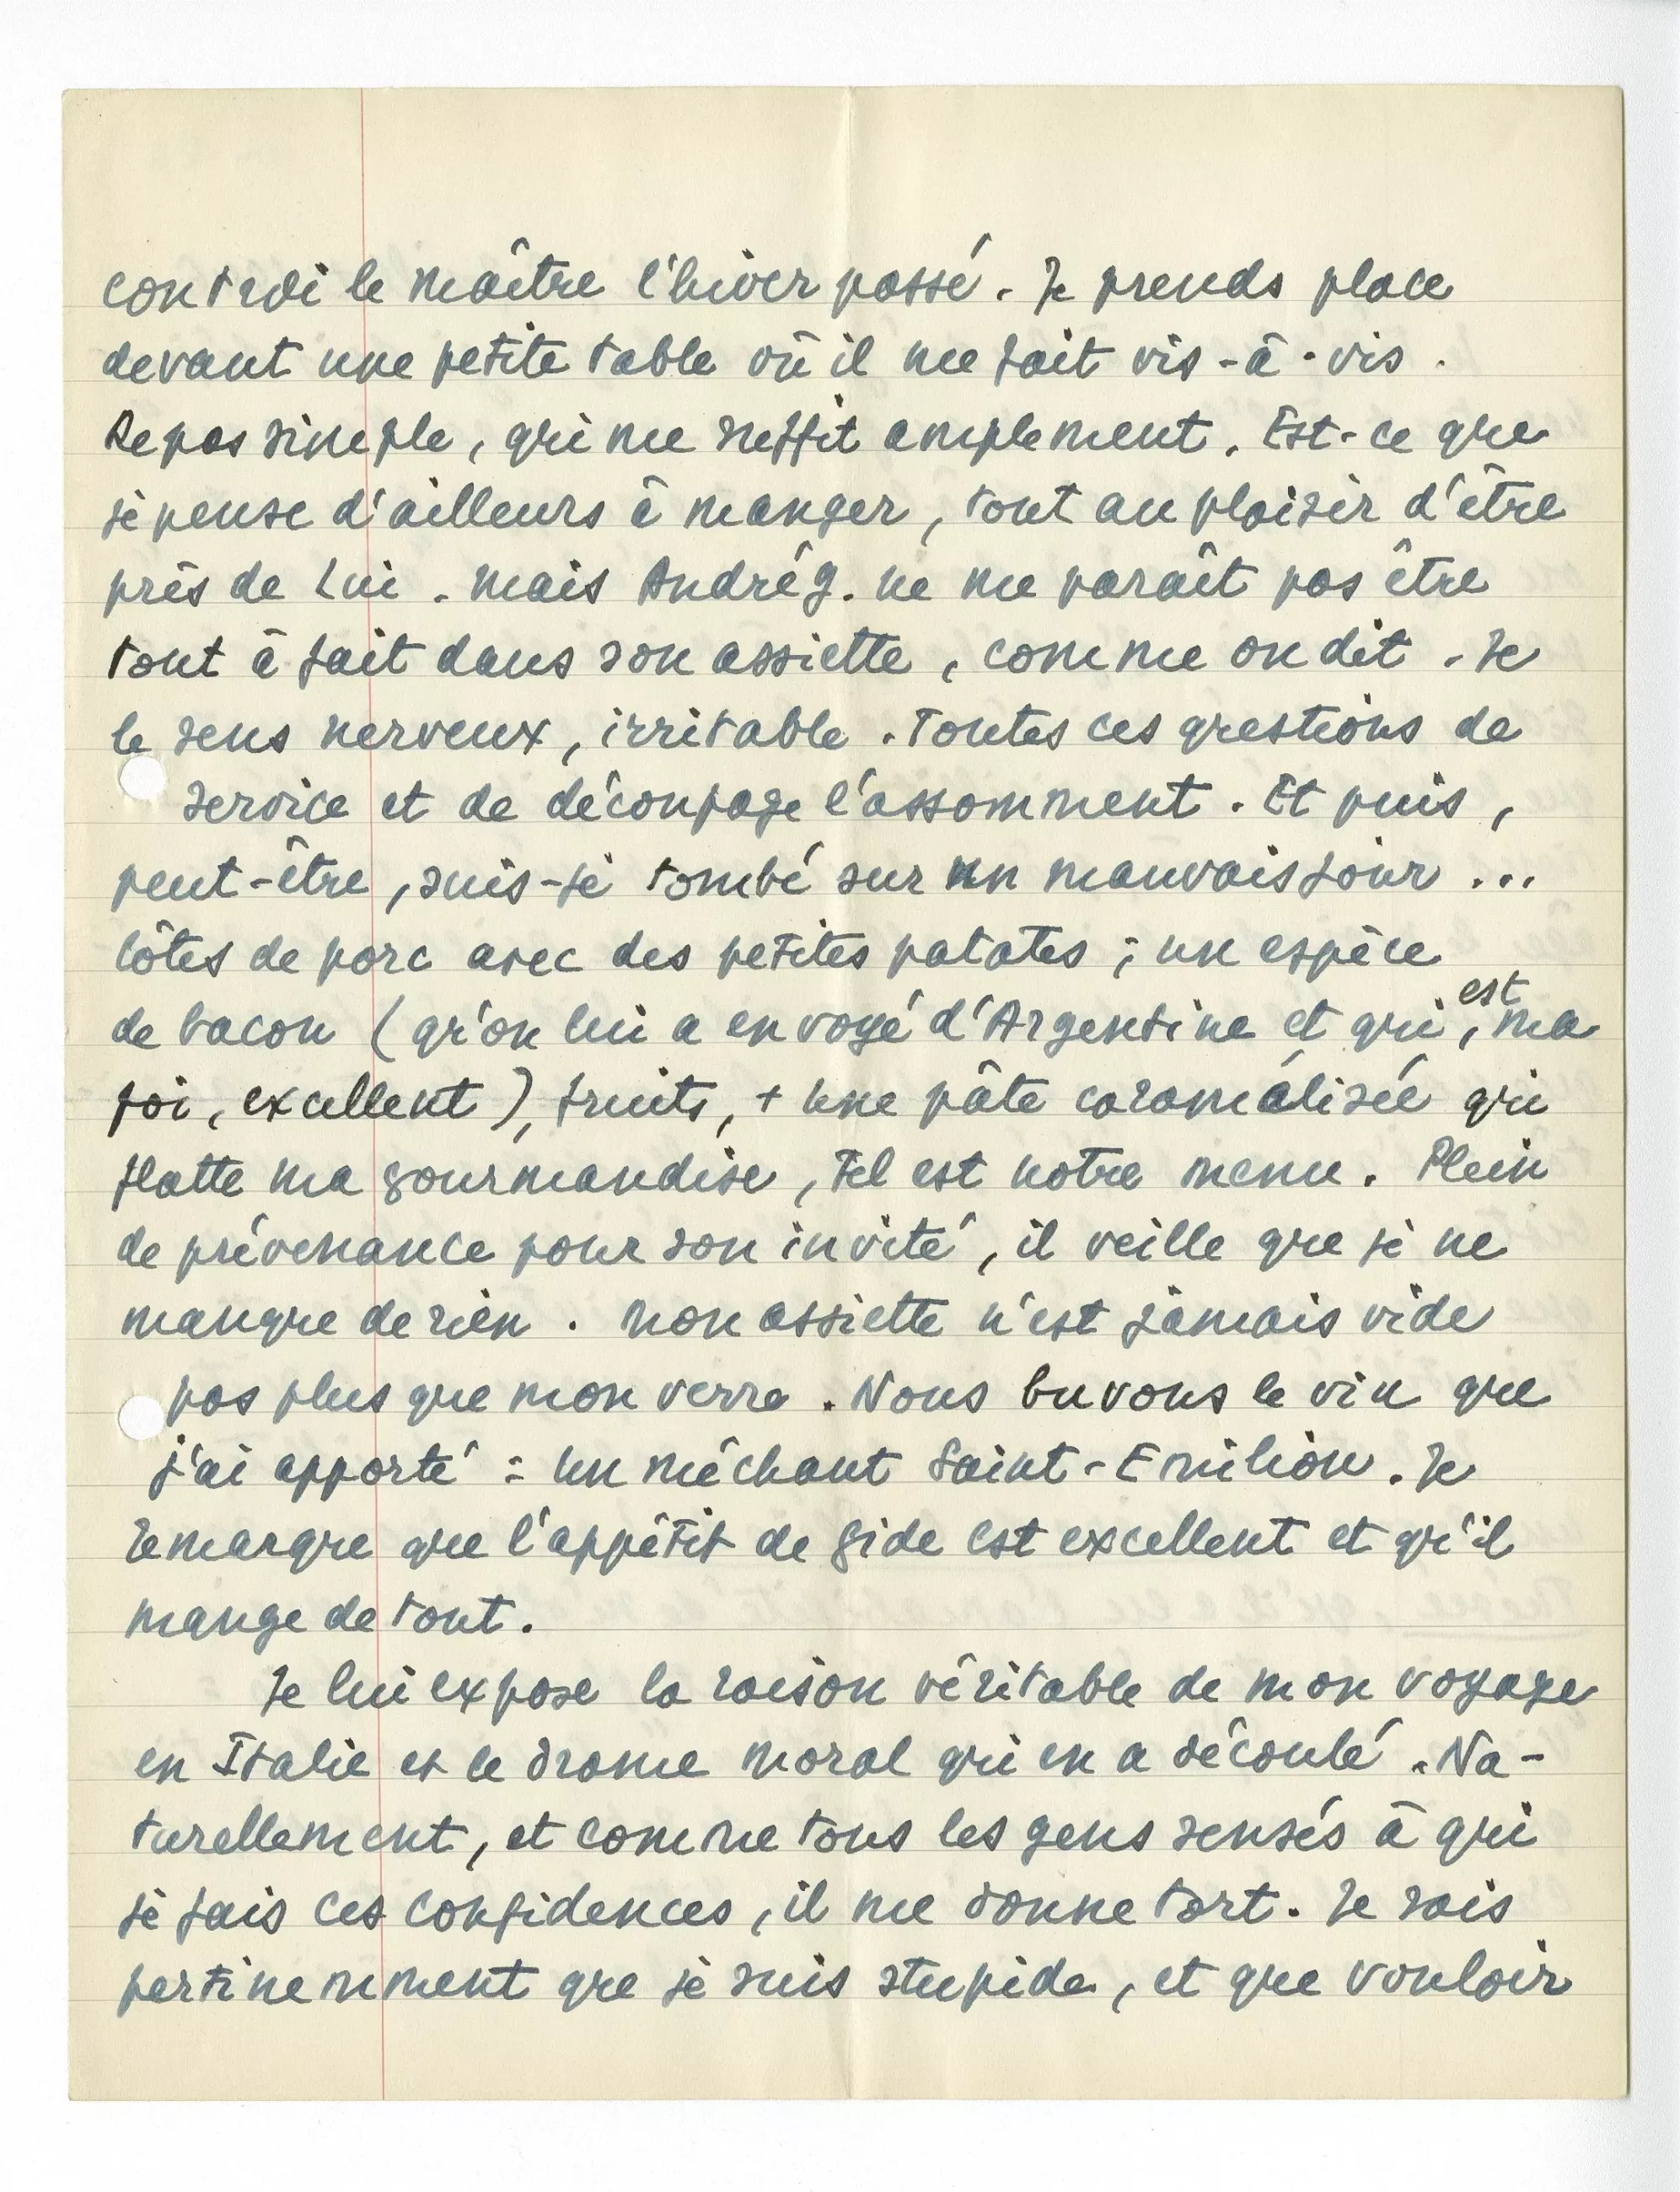 contredi le maître l'hiver passé. Je prends place
devant une petite table où il me fait vis-à-vis.
Repas simple, qui me suffit amplement. Est-ce que
je pense d'ailleurs à manger, tout au plaisir d'être
près de Lui. Mais André G. ne me paraît pas être
tout à fait dans son assiette, comme on dit. Je
le sens nerveux, irritable. Toutes ces questions de
service et de découpage l'assomment. Et puis,
peut-être, suis-je tombé sur un mauvais jour...
Côtes de porc avec des petites patates ; un espèce
de bacon (qu'on lui a envoyé d'Argentine et qui est, ma
foi, excellent), fruits, + une pâte caramélisée qui
flatte ma gourmandise, tel est notre menu. Plein
de prévenance pour son invité, il veille que je ne
manque de rien. Mon assiette n'est jamais vide
pas plus que mon verre. Nous buvons le vin que
j'ai apporté : un méchant Saint-Emilion. Je
remarque que l'appétit de Gide est excellent et qu'il
mange de tout.
Je lui expose la raison véritable de mon voyage
en Italie et le drame moral qui en a découlé. Na-
turellement, et comme tous les gens sensés à qui
je fais ces confidences, il me donne tort. Je sais
pertinemment que je suis stupide, et que vouloir